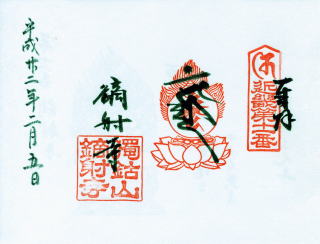 奉拝
近畿第十一番
鏑射寺
獨鈷山
鏑射寺
平成廿二年二月五日